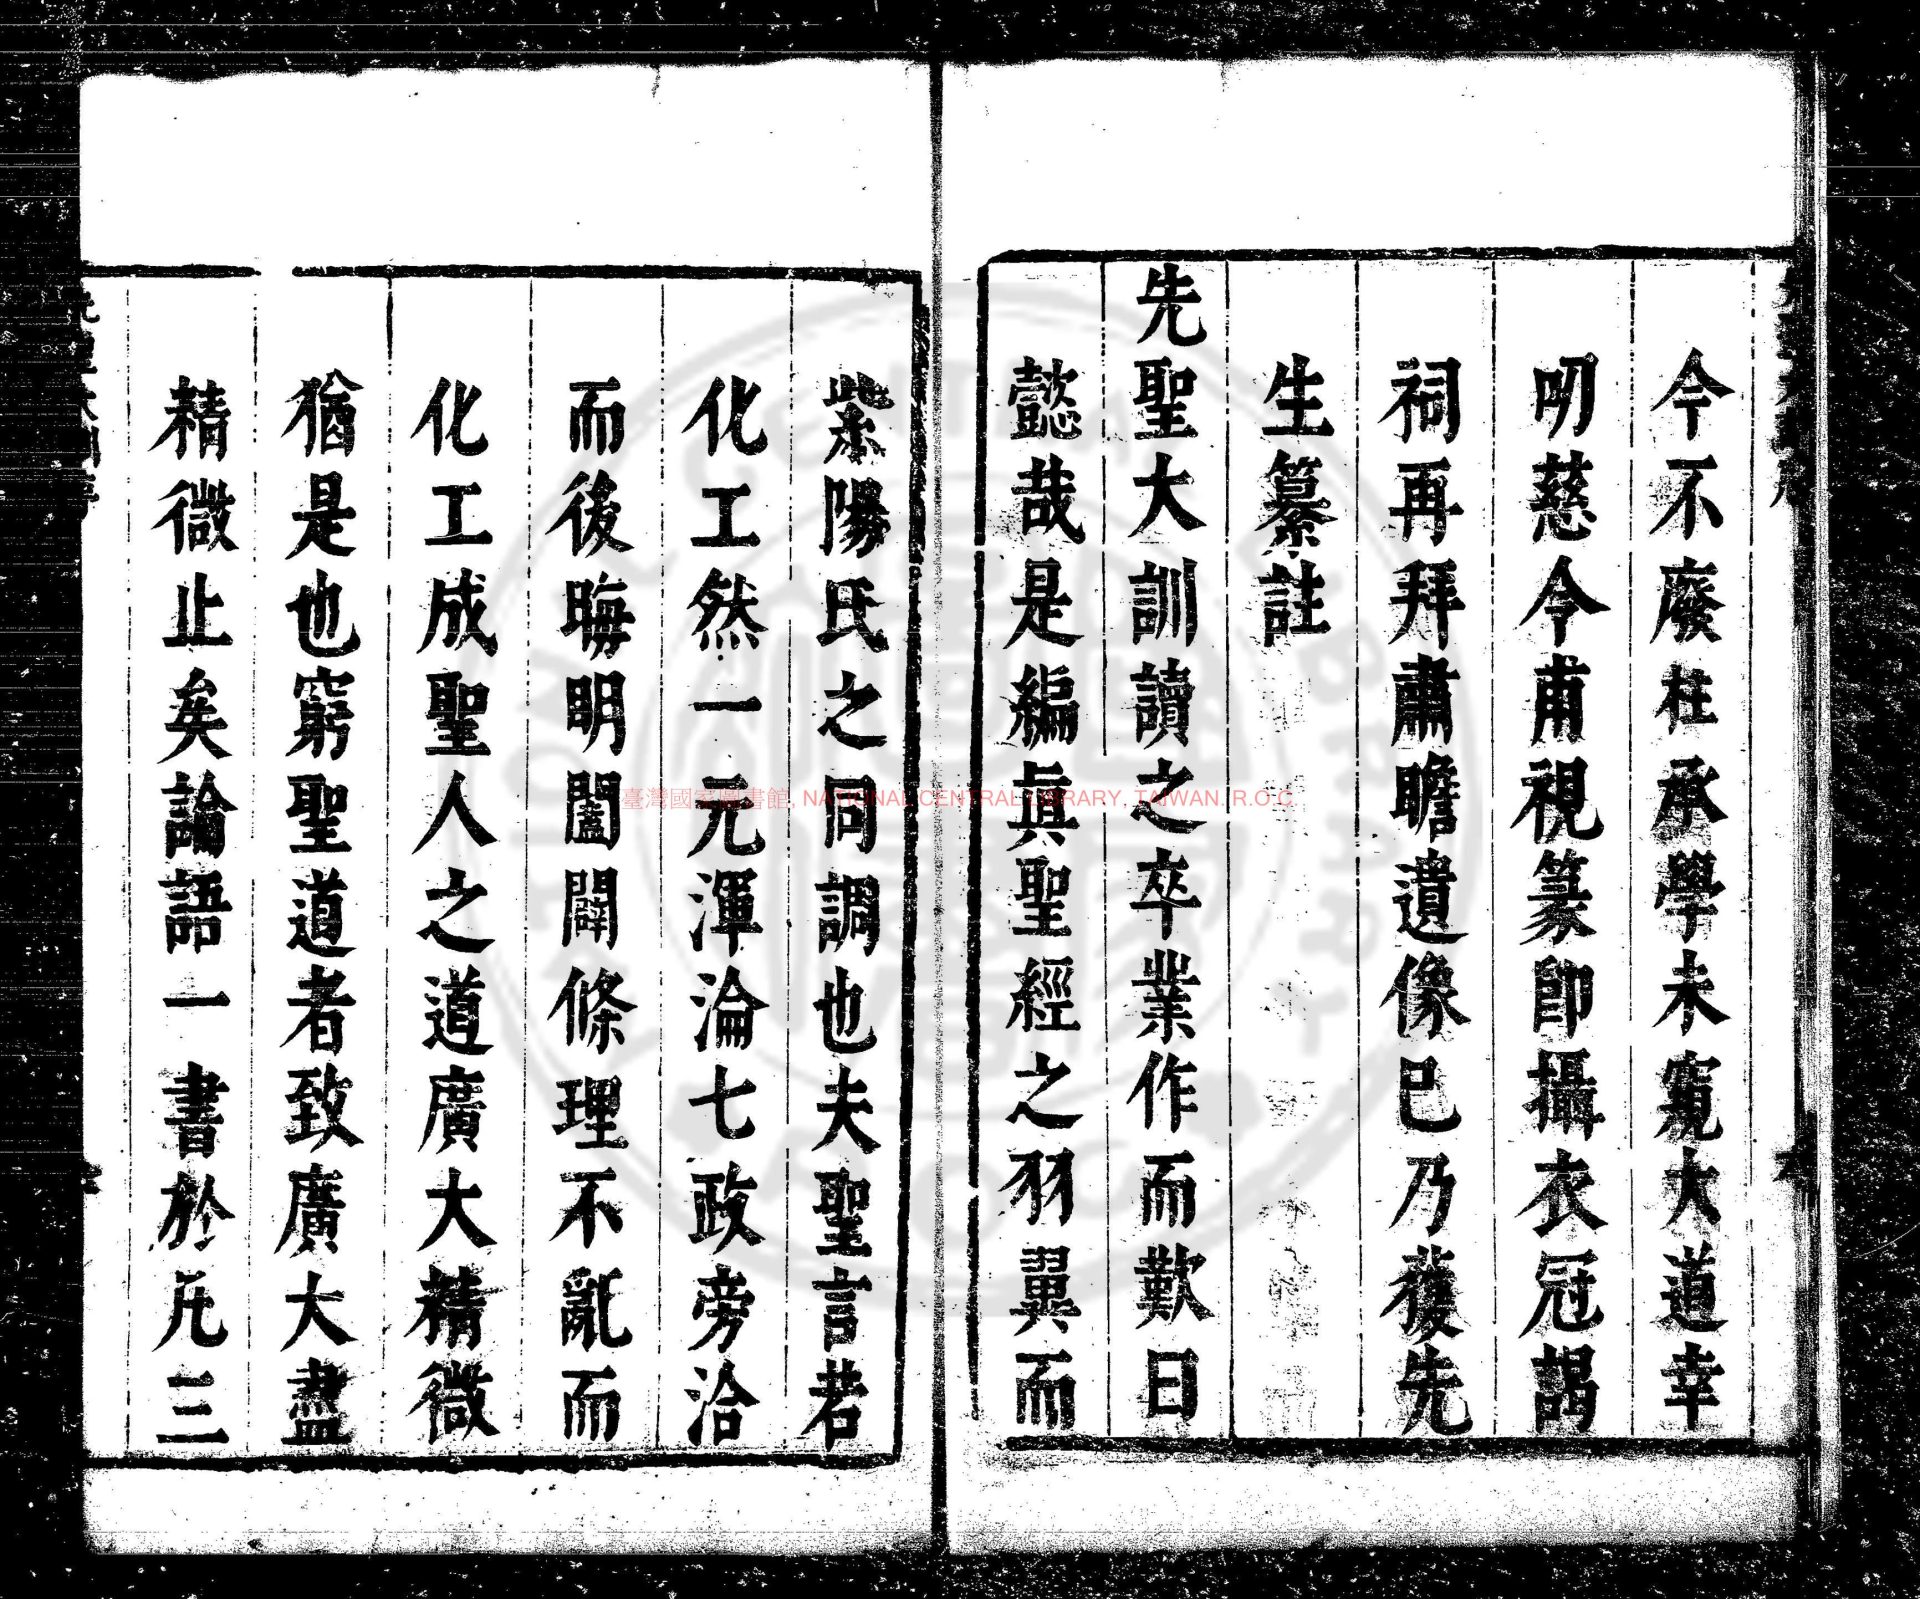 今不廢柱承學未窺大道幸
叨慈令甫視篆卽攝衣冠謁
祠再拜肅瞻遺像已乃獲先
生纂註
先聖大訓讀之卒業作而歎曰
懿哉是編眞聖經之羽翼而
紫陽氏之同調也夫聖言若
化工然一元渾淪七政旁洽
而後晦明闔闢條理不亂而
化工成聖人之道廣大精微
猶是也窮聖道者致廣大盡
精微止矣論語一書於凡三
臺灣國家圖書館, NATIONAL CENTRAL LIBRARY, TAIWAN, R.O.C